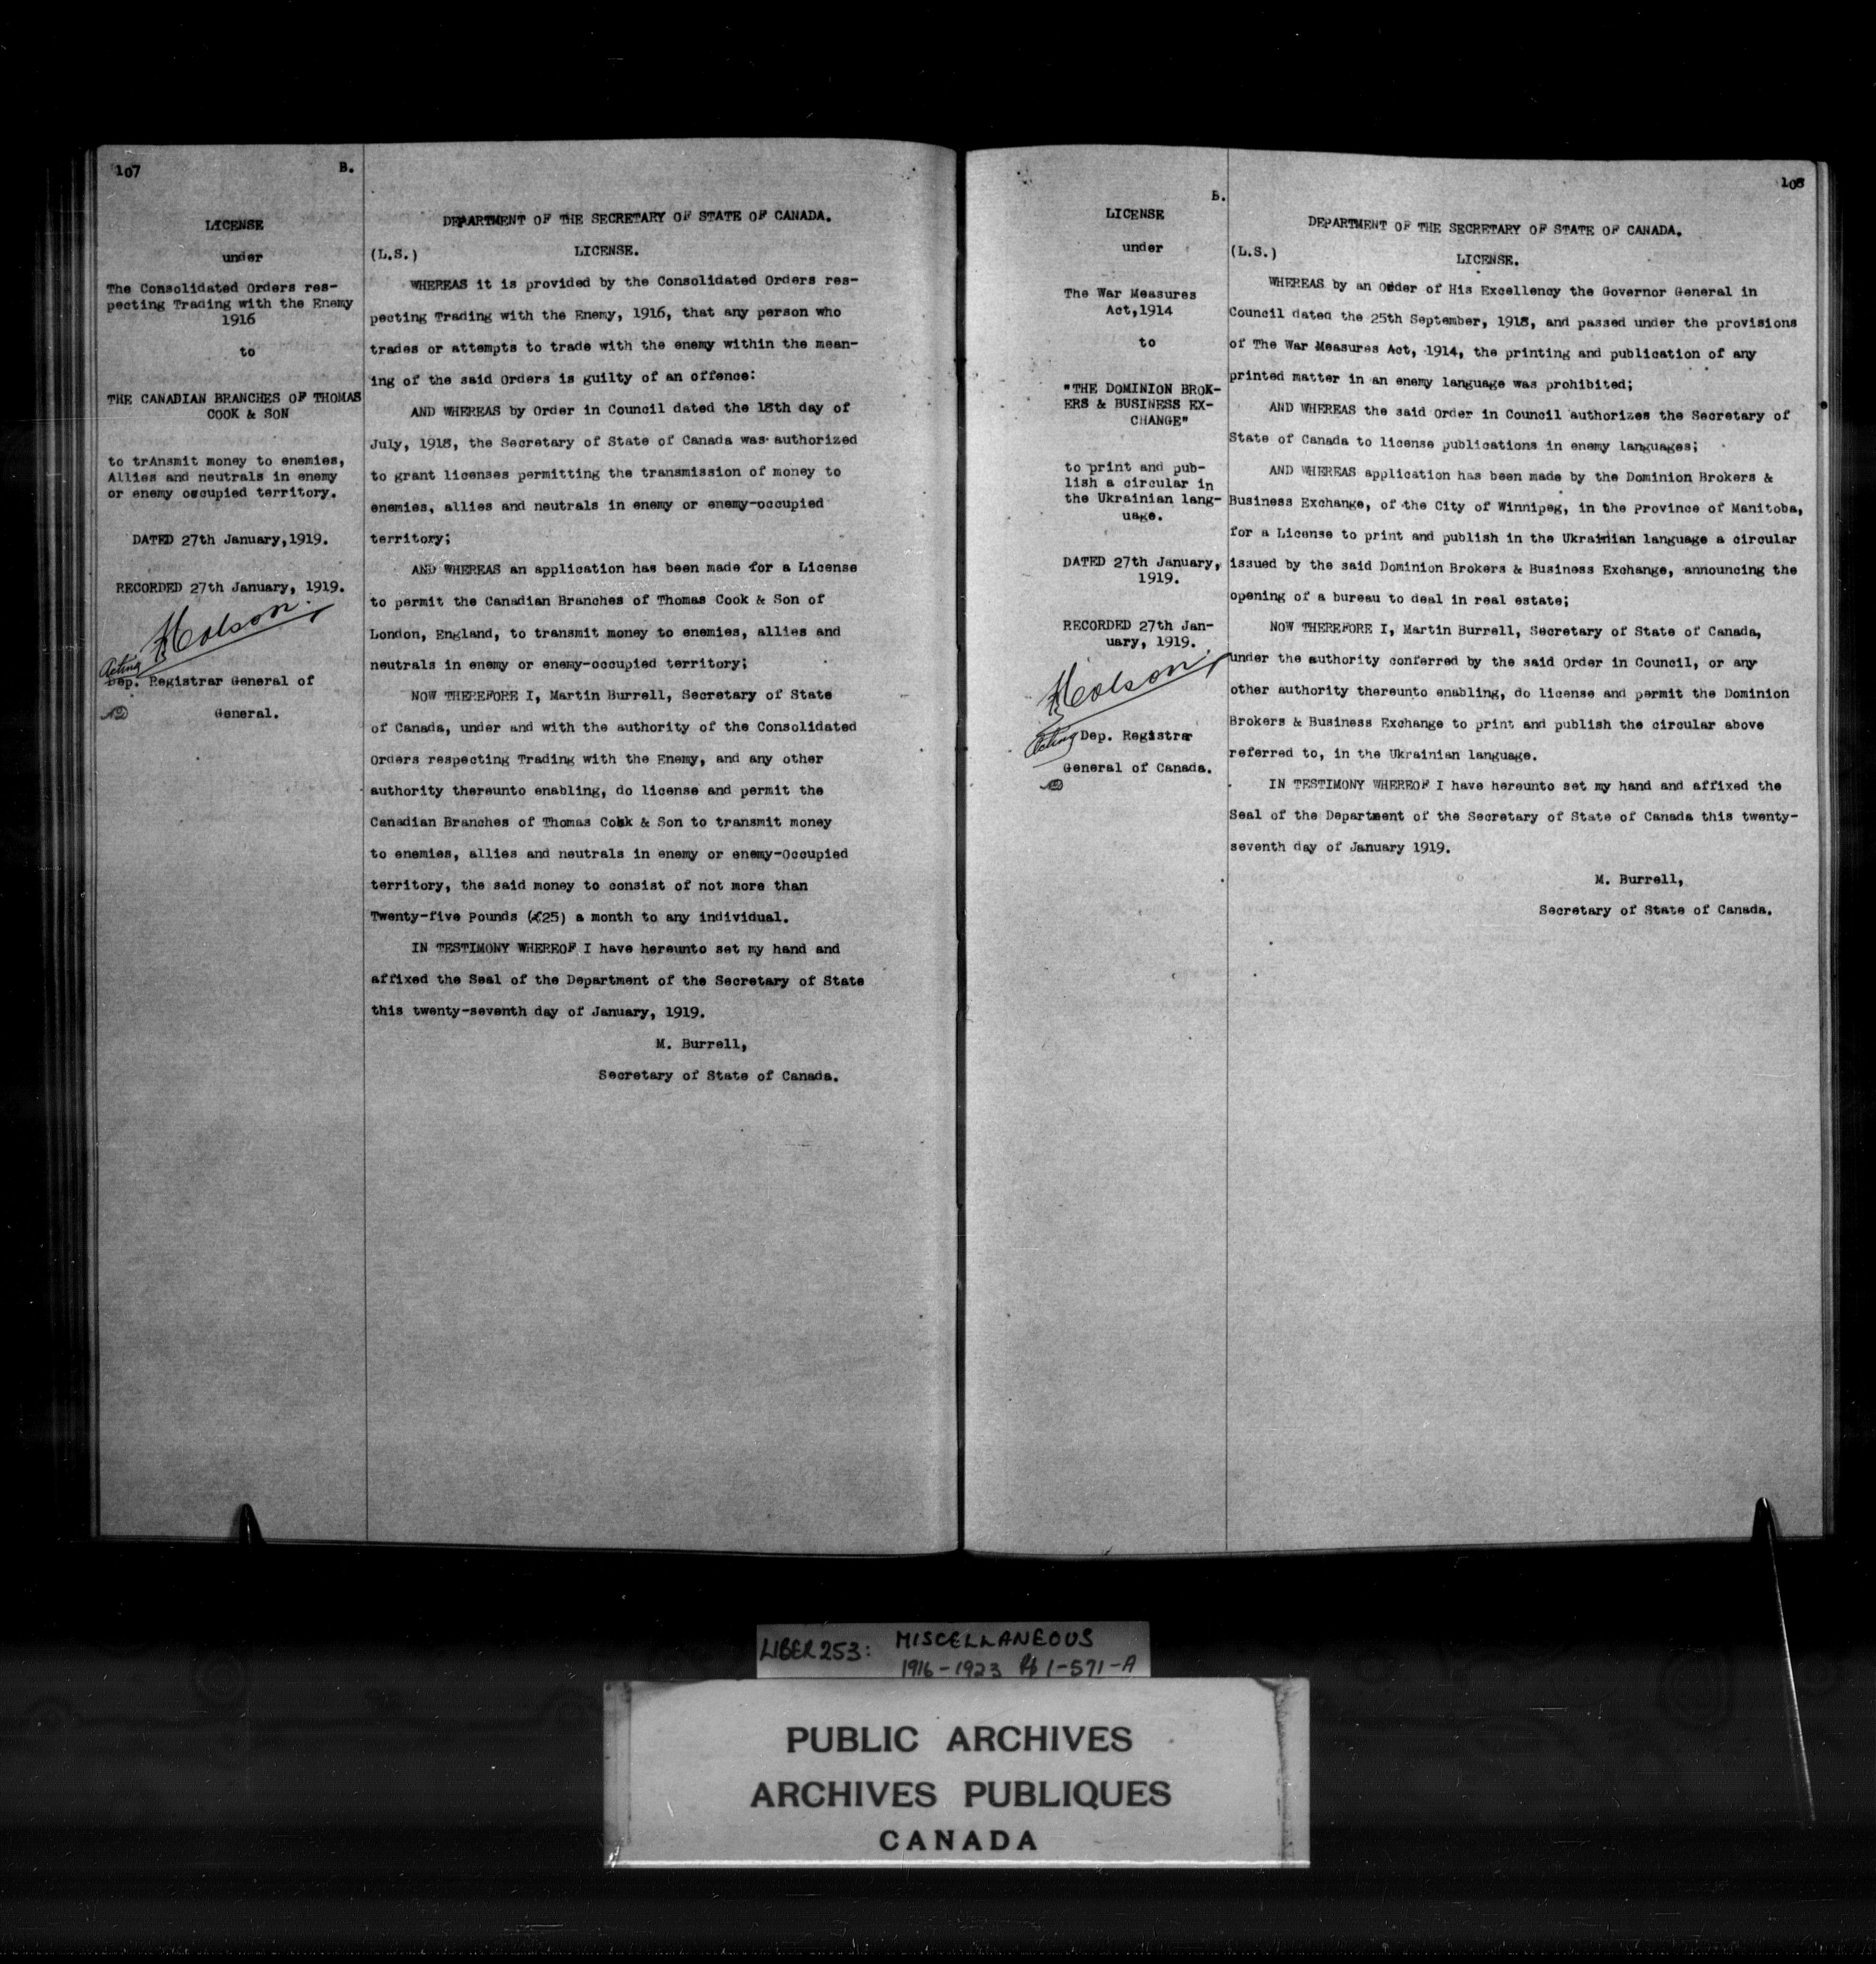 107 B.
LICENSE
under
The Consolidated Orders res-
pecting Trading with the Enemy
1916
to
THE CANADIAN BRANCHES OF THOMAS
COOK & SON
to trAnsmit money to enemies,
Allies and neutrals in enemy
or enemy occupied territory.
DATED 27th January,1919.
RECORDED 27th January, 1919.
Acting
Dep. Registrar General of
General.
DEPARTMENT OF THE SECRETARY OF STATE OF CANADA.
(L.S.) LICENSE.
WHEREAS it is provided by the Consolidated Orders res-
pecting Trading with the Enemy, 1916, that any person who
trades or attempts to trade with the enemy within the mean-
ing of the said Orders is guilty of an offence:
AND WHEREAS by Order in Council dated the 18th day of
July, 1918, the Secretary of State of Canada was authorized
to grant licenses permitting the transmission of money to
enemies, allies and neutrals in enemy or enemy-occupied
territory;
AND WHEREAS an application has been made for a License
to permit the Canadian Branches of Thomas Cook & Son of
London, England, to transmit money to enemies, allies and
neutrals in enemy or enemy-occupied territory;
NOW THEREFORE I, Martin Burrell, Secretary of State
of Canada, under and with the authority of the Consolidated
Orders respecting Trading with the Enemy, and any other
authority thereunto enabling, do license and permit the
Canadian Branches of Thomas Cook & Son to transmit money
to enemies, allies and neutrals in enemy or enemy-Occupied
territory, the said money to consist of not more than
Twenty-five Pounds (£25) a month to any individual.
IN TESTIMONY WHEREOF I have hereunto set my hand and
affixed the Seal of the Department of the Secretary of State
this twenty-seventh day of January, 1919.
M. Burrell,
Secretary of State of Canada.
108
B.
LICENSE
under
The War Measures
Act,1914
to
"THE DOMINION BROK-
ERS & BUSINESS EX-
CHANGE"
to print and pub-
lish a circular in
the Ukrainian lang-
uage.
DATED 27th January,
1919.
RECORDED 27th Jan-
uary, 1919.
Acting Dep. Registrar
General of Canada.
DEPARTMENT OF THE SECRETARY OF STATE OF CANADA.
(L.S.) LICENSE.
WHEREAS by an Order of His Excellency the Governor General in
Council dated the 25th September, 1918, and passed under the provisions
of The War Measures Act, 1914, the printing and publication of any
printed matter in an enemy language was prohibited;
AND WHEREAS the said Order in Council authorizes the Secretary of
State of Canada to license publications in enemy languages;
AND WHEREAS application has been made by the Dominion Brokers &
Business Exchange, of the City of Winnipeg, in the Province of Manitoba,
for a License to print and publish in the Ukrainian language a circular
issued by the said Dominion Brokers & Business Exchange, announcing the
opening of a bureau to deal in real estate;
NOW THEREFORE I, Martin Burrell, Secretary of State of Canada,
under the authority conferred by the said Order in Council, or any
other authority thereunto enabling, do license and permit the Dominion
Brokers & Business Exchange to print and publish the circular above
referred to, in the Ukrainian language.
IN TESTIMONY WHEREOF I have hereunto set my hand and affixed the
Seal of the Department of the Secretary of State of Canada this twenty-
seventh day of January 1919.
M. Burrell,
Secretary of State of Canada.
LIBER 253: MISCELLANEOUS
1916-1923 1-571-A
PUBLIC ARCHIVES
ARCHIVES PUBLIQUES
CANADA